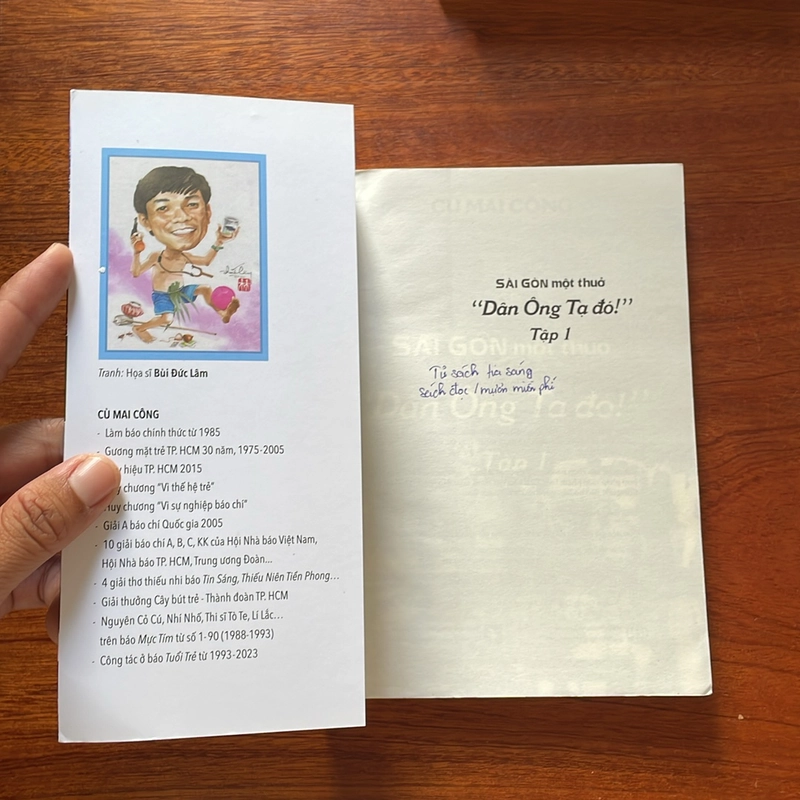 Tranh: Họa sĩ Bùi Đức Lâm
CÙ MAI CÔNG
- Làm báo chính thức từ 1985
- Gương mặt trẻ TP. HCM 30 năm, 1975-2005
hiệu TP. HCM 2015
chương "Vì thế hệ trẻ"
Huy chương "Vì sự nghiệp báo chí"
- Giải A báo chí Quốc gia 2005
- 10 giải báo chí A, B, C, KK của Hội Nhà báo Việt Nam,
Hội Nhà báo TP. HCM, Trung ương Đoàn...
- 4 giải thơ thiếu nhi báo Tin Sáng, Thiếu Niên Tiền Phong...
- Giải thưởng Cây bút trẻ - Thành đoàn TP. HCM
- Nguyên Cỏ Cú, Nhí Nhố, Thi sĩ Tò Te, Lí Lắc...
trên báo Mực Tím từ số 1-90 (1988-1993)
- Công tác ở báo Tuổi Trẻ từ 1993-2023
CÙ MAI CÔNG
SÀI GÒN một thuở
"Dân Ông Tạ đó!"
Tập 1
Tủ sách tia sáng
sách đọc / mượn miễn phí
SÀI GÒN một thuở
"Dân Ông Tạ đó!"
Tập 1